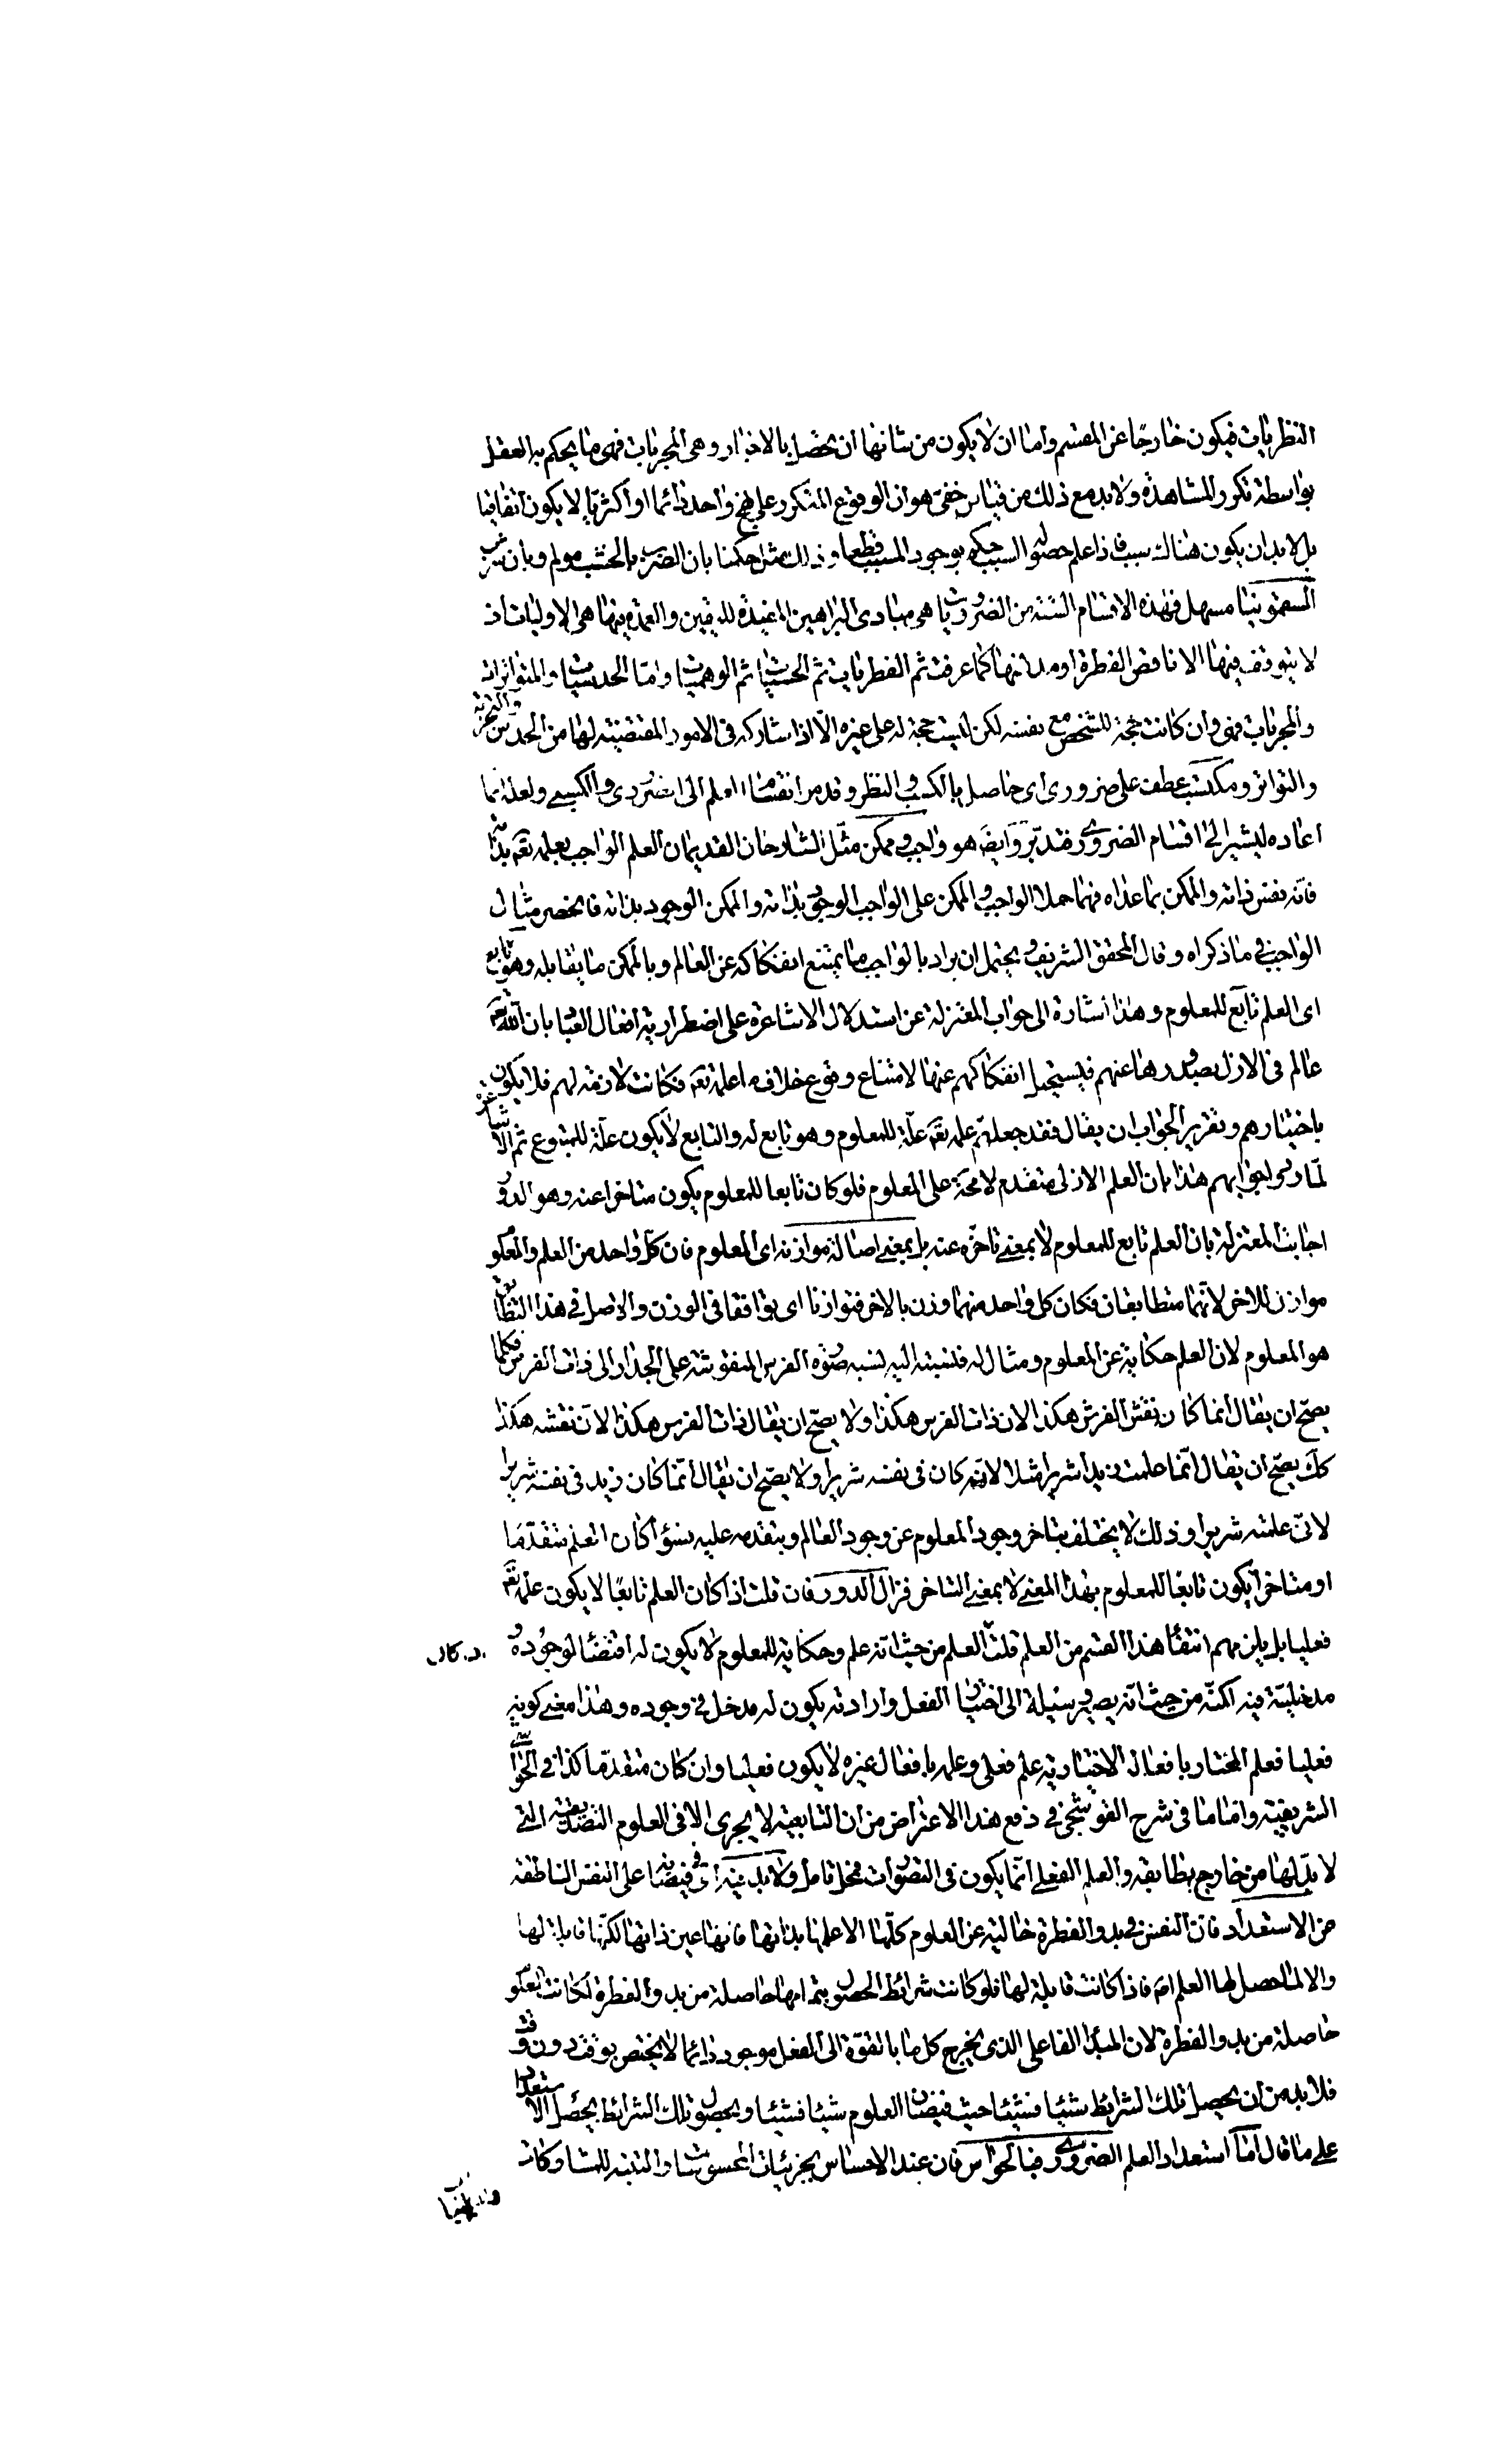 النظريات فيكون خارجا عن المقسم واما ان لا يكون من شانها ان تحصل بالاخبار وهى المجربات فهى ما يحكم به العقل
بواسطة تكرر المشاهدة ولابد مع ذلك من قياس خفى هو ان الوقوع المتكرر على نهج واحد دائما او اكثريا لا يكون اتفاقيا
بل لابد ان يكون هناك سبب فاذا علم حصول السبب حكم بوجود المسبب قطعا وذلك مثل حكمنا بان الضرب بالخشب مولم وبان شرب
السقمونيا مسهل فهذه الاقسام الستة من الضروريات هى مبادى البراهين المفيدة لليقين والعمدة منها هى الاوليات اذ
لا يتوقف فيها الا ناقص الفطرة او مدنسها كما عرفت ثم الفطريات ثم الحسيات ثم الوهميات واما الحدسيات والمتواترات
والمجربات فهى وان كانت حجة للشخص مع نفسه لكن ليست حجة له على غيره الا اذا شاركه فى الامور المقتضية لها من الحدس والتجربة
والتواتر ومكتسب عطف على ضرورى اى حاصل بالكسب والنظر وقد مر انقسام العلم الى الضرورى والكسبى ولعله انما
اعاده ليشير الى اقسام الضرورى فتدبر وايضا هو واجب وممكن مثل الشارحان القديمان العلم الواجب بعلمه تعه بذاته
فانه نفس ذاته والممكن بما عداه فهما حملا الواجب والممكن على الواجب الوجود بذاته والممكن الوجود بذاته فانحصر مثال
الواجب فى ما ذكراه وقال المحقق الشريف ويحتمل ان يراد بالواجب ما يمتنع انفكاكه عن العالم وبالممكن ما يقابله وهو تابع
اى العلم تابع للمعلوم وهذا اشارة الى جواب المعتزلة عن استدلال الاشاعرة على اضطرارية افعال العباد بان الله تعه
عالم فى الازل بصدورها عنهم فيستحيل انفكاكهم عنها لامتناع وقوع خلاف ما علمه تعه فكانت لازمة لهم فلا يكون
باختيارهم وتقرير الجواب ان يقال فقد جعلتم علمه تعه علة للمعلوم وهو تابع له والتابع لا يكون علة للمتبوع ثم الاشاعرة
لما ردوا جوابهم هذا بان العلم الازلى متقدم لا محة على المعلوم فلو كان تابعا للمعلوم يكون متاخرا عنه وهو الدور
اجابت المعتزلة بان العلم تابع للمعلوم لا بمعنى تاخره عنه بل بمعنى اصالة موازنه اى المعلوم فان كل واحد من العلم والمعلوم
موازن للاخر لانهما متطابقان فكان كل واحد منهما وزن بالاخر فتوازنا اى توافقا فى الوزن والاصل فى هذا التطابق
هو المعلوم لان العلم حكاية عن المعلوم ومثال له فنسبته اليه كنسبة صورة الفرس المنقوشة على الجدار الى ذات الفرس فكما
يصح ان يقال انما كان نقش الفرس هكذا لان ذات الفرس هكذا ولا يصح ان يقال ذات الفرس هكذا لان نقشه هكذا
كك يصح ان يقال انما علمت زيدا شريرا مثلا لانه كان فى نفسه شريرا ولا يصح ان يقال انما كان زيد فى نفسه شريرا
لانى علمته شريرا وذلك لا يختلف بتاخر وجود المعلوم عن وجود العالم وبتقدمه عليه فسواء كان العلم متقدما
او متاخرا يكون تابعا للمعلوم بهذا المعنى لا بمعنى التاخر فزال الدور فان قلت اذا كان العلم تابعا لا يكون علمه تعه
فعليا بل يلزمهم انتفاء هذا القسم من العلم قلت العلم من حيث انه علم وحكاية للمعلوم لا يكون له اقتضاء لوجوده و
مدخلية فيه لكنه من حيث انه يصير وسيلة الى اختيار الفعل وارادته يكون له مدخل فى وجوده وهذا معنى كونه
فعليا فعلم المختار بافعاله الاختيارية علم فعلى وعلمه بافعال غيره لا يكون فعليا وان كان متقدما كذا فى الحواشى
الشريفية واما ما فى شرح القوشجى فى دفع هذا الاعتراض من ان التابعية لا يجرى الا فى العلوم التصديقية التى
لابد لها من خارج يطابقه والعلم الفعلى انما يكون فى التصورات فمحل تامل ولابد فيه اى فى فيضانه على النفس الناطقة
من الاستعداد فان النفس فى بدو الفطرة خالية عن العلوم كلها الا علمها بذاتها فانها عين ذاتها لكنها قابلة لها
والا لما حصل لها العلم اصلا فاذا كانت قابلة لها فلو كانت شرائط الحصول بتمامها حاصلة من بدو الفطرة لكانت العلوم
حاصلة من بدو الفطرة لان المبدأ الفاعلى الذى يخرج كل ما بالقوة الى الفعل موجود دائما لا يختص بوقت دون وقت
فلابد من ان يحصل تلك الشرائط شيئا فشيئا حيث فيضان العلوم شيئا فشيئا وبحصول تلك الشرائط يحصل الاستعداد
على ما قال اما استعداد العلم الضرورى فبالحواس فان عند الاحساس بجزئيات المحسوسات والتنبه للمشاركات